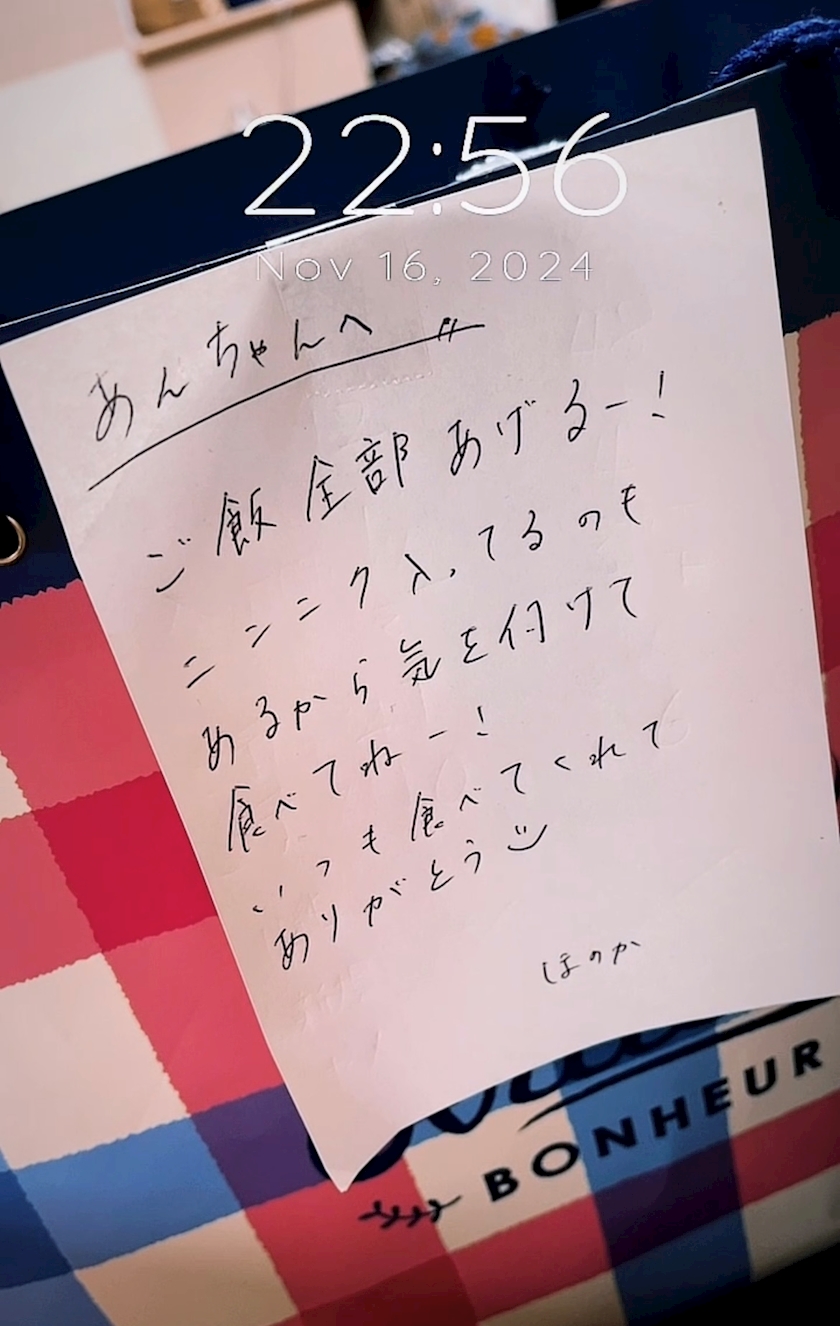 22:56
Nov 16, 2024
あんちゃんへ
ご飯全部あげるー!
ニンニク入ってるのも
あるから気を付けて
食べてねー!
いつも食べてくれて
ありがとう
ほのか
BONHEUR